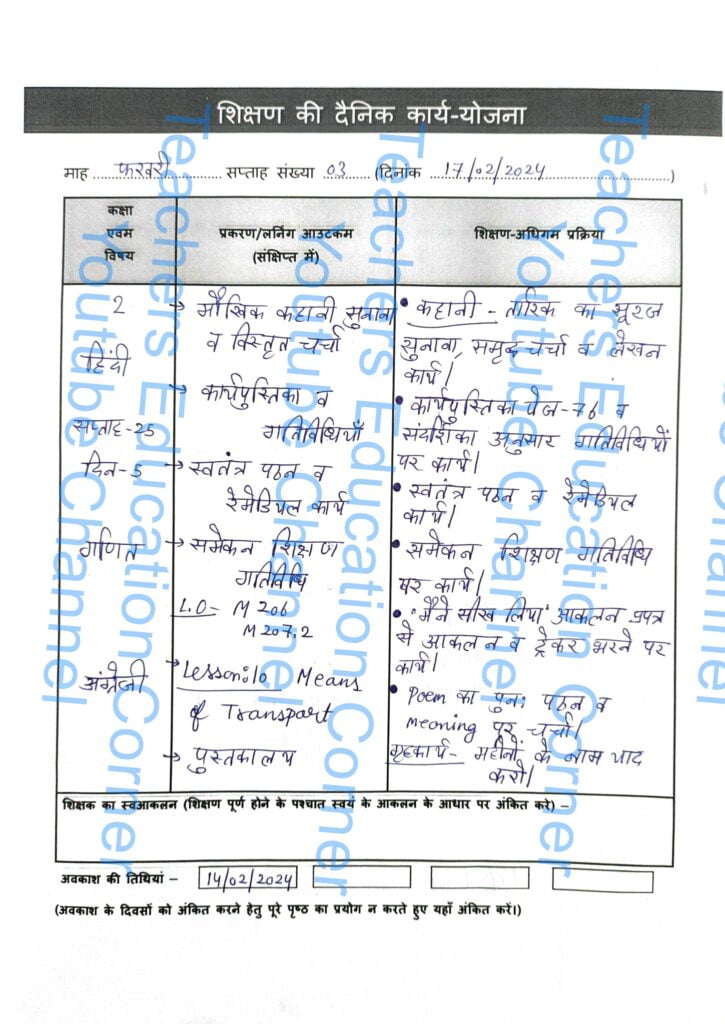 शिक्षण की दैनिक कार्य-योजना
माह फरवरी सप्ताह संख्या 03 (दिनांक 17/02/2024)
कक्षा
एवम
विषय
प्रकरण/लर्निंग आउटकम
(संक्षिप्त में)
शिक्षण-अधिगम प्रक्रिया
2
हिंदी
सप्ताह-25
दिन-5
→ मौखिक कहानी सुनाना
व विस्तृत चर्चा
→ कार्यपुस्तिका व
गतिविधियाँ
→ स्वतंत्र पठन व
रेमेडियल कार्य
• कहानी - तारिक का सूरज
सुनाना, समूह चर्चा व लेखन
कार्य।
• कार्यपुस्तिका पेज-76 व
संदर्शिका अनुसार गतिविधियों
पर कार्य।
• स्वतंत्र पठन व रेमेडियल
कार्य।
गणित
→ समेकन शिक्षण
गतिविधि
L.O- M 206
M 207.2
• समेकन शिक्षण गतिविधि
पर कार्य।
• 'मैंने सीख लिया' आकलन प्रपत्र
से आकलन व ट्रेकर भरने पर
कार्य।
अंग्रेजी
→ Lesson:10 Means
of Transport
→ पुस्तकालय
• Poem का पुनः पठन व
meaning पर चर्चा।
गृहकार्य- महीनों के नाम याद
करो।
शिक्षक का स्वआकलन (शिक्षण पूर्ण होने के पश्चात स्वयं के आकलन के आधार पर अंकित करे) –
अवकाश की तिथियां – 14/02/2024
(अवकाश के दिवसों को अंकित करने हेतु पूरे पृष्ठ का प्रयोग न करते हुए यहाँ अंकित करें।)
Teachers Education Corner
Youtube Channel
Teachers Education Corner
Youtube Channel
Teachers Education Corner
Youtube Channel